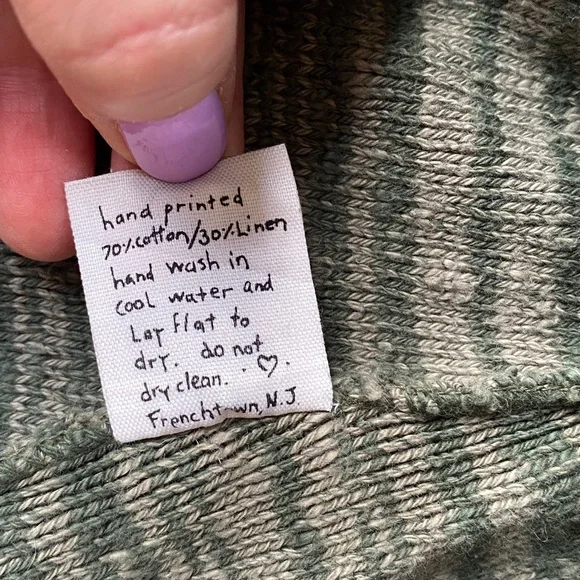 hand printed
70% cotton/30% Linen
hand wash in
cool water and
Lay flat to
dry. do not
dry clean. ♡.
Frenchtown, N.J